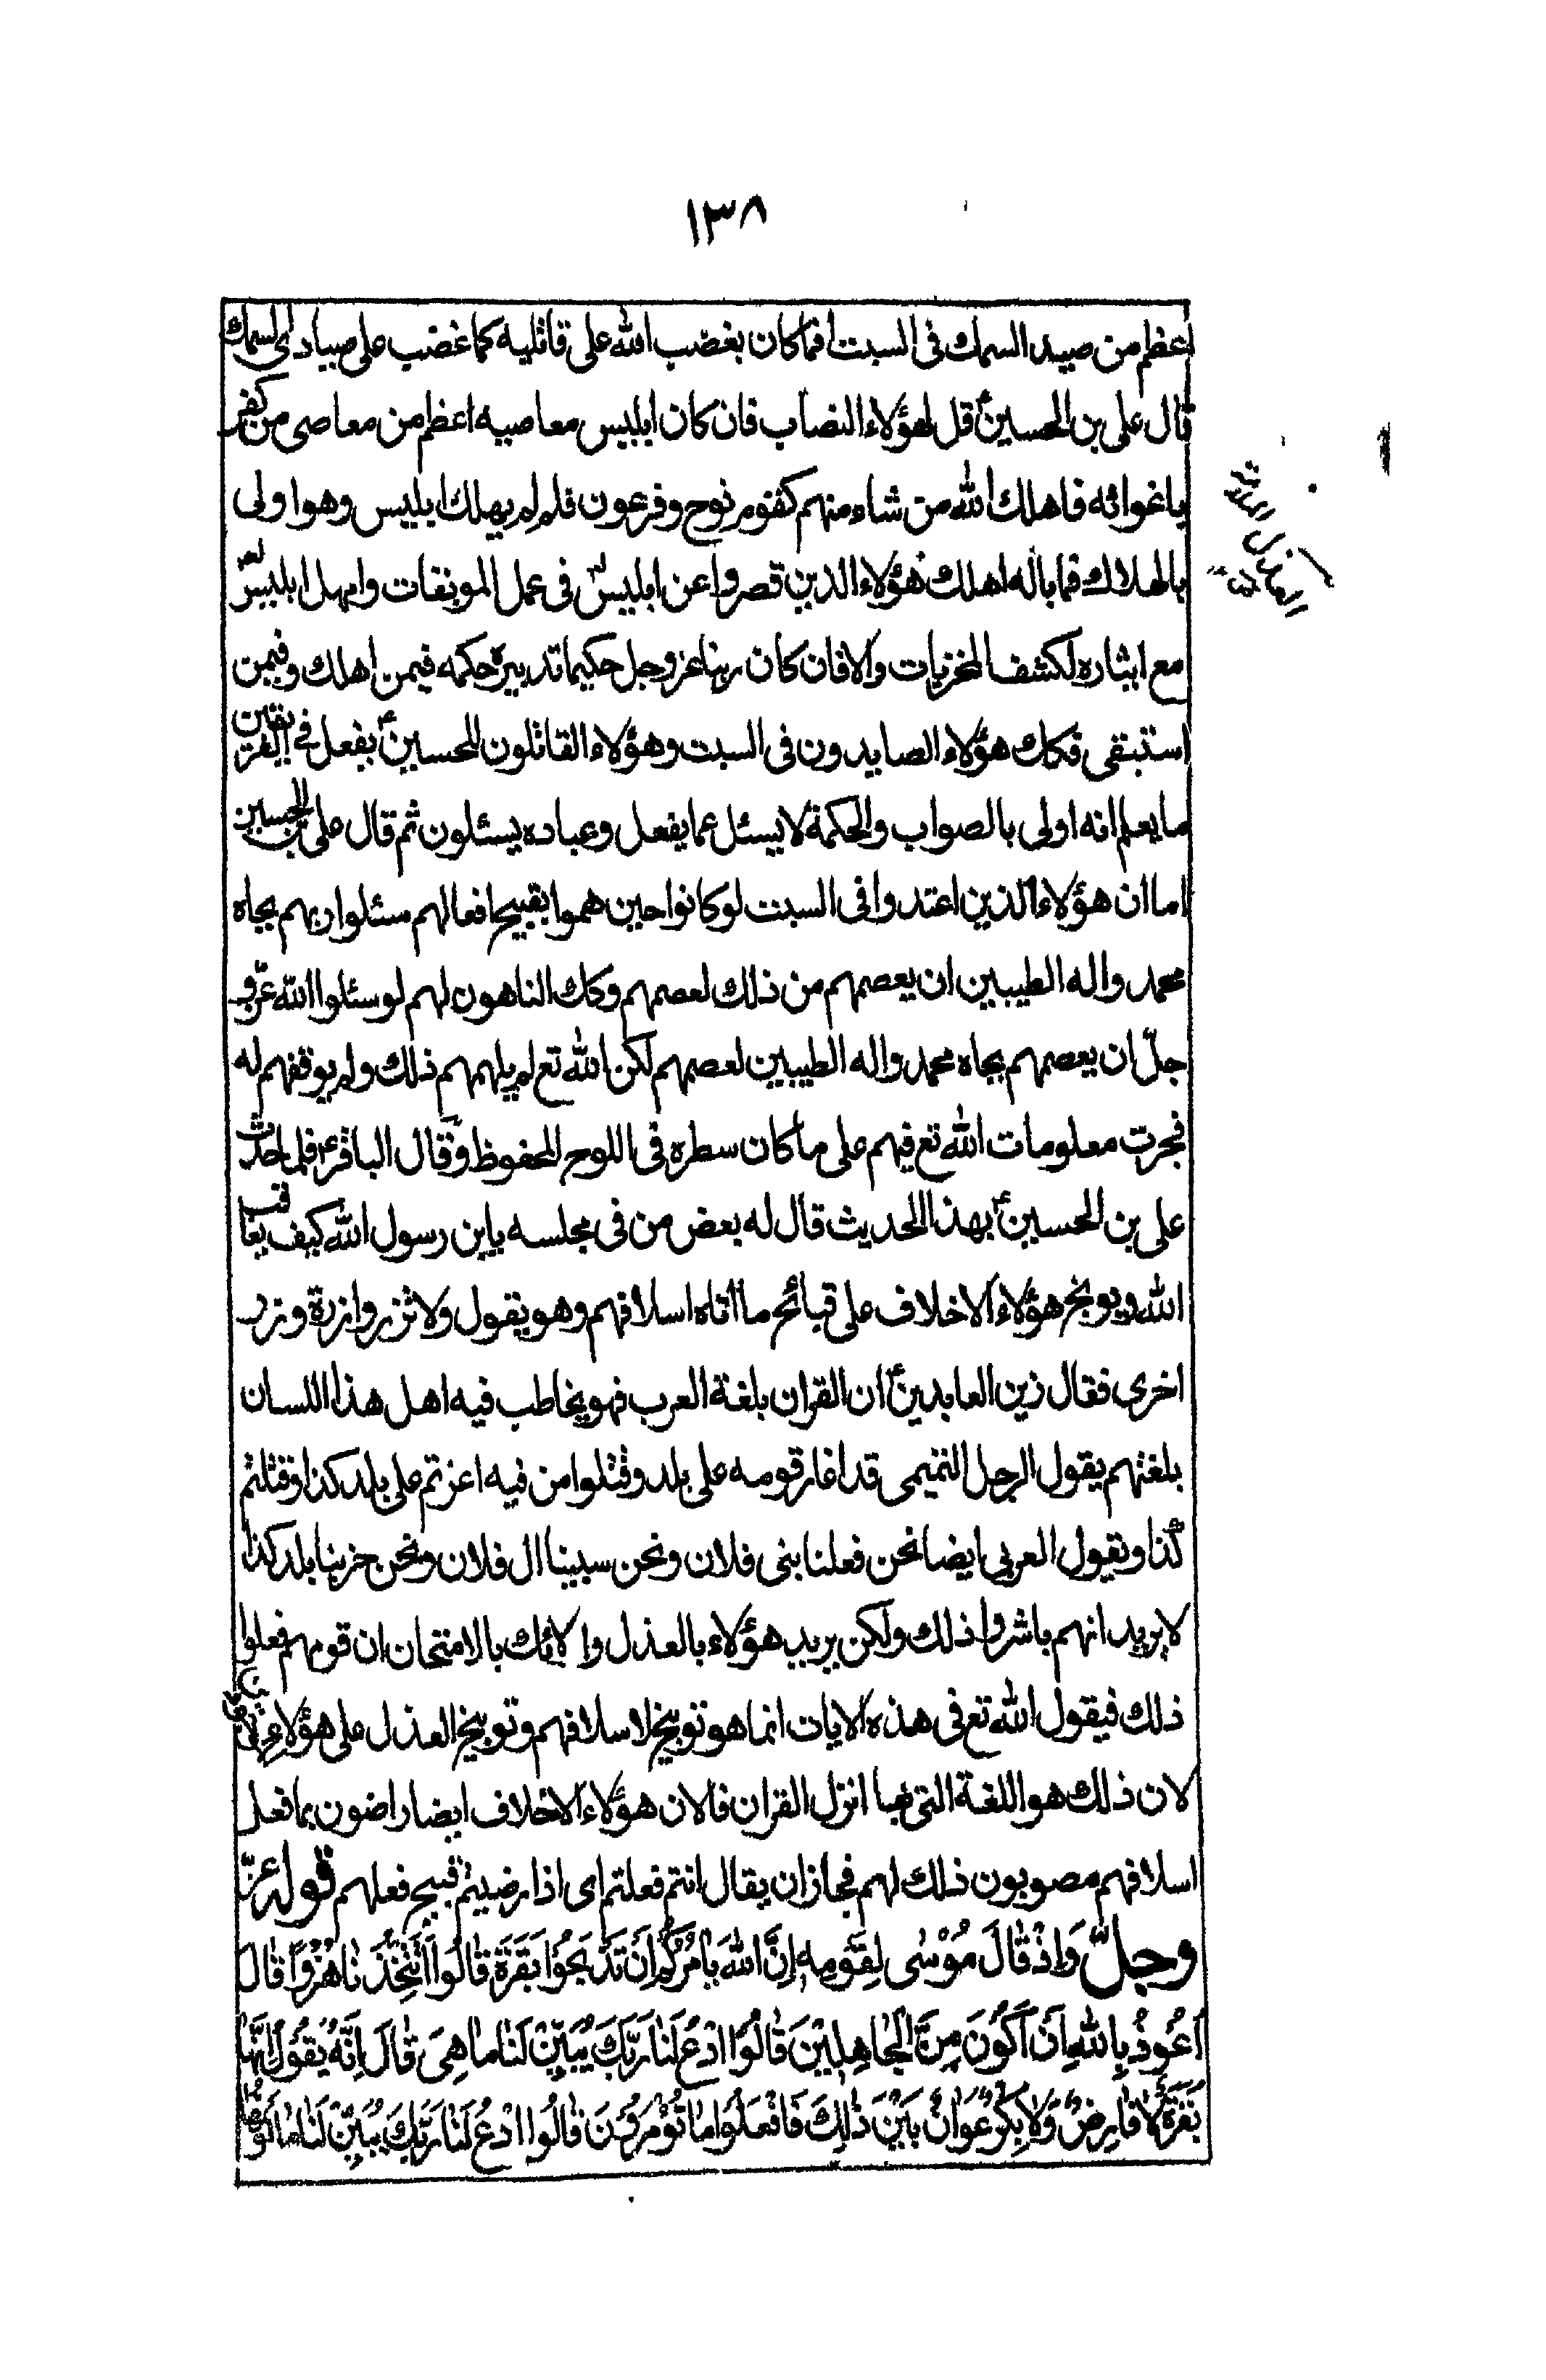 ١٣٨
اعظم من صيد السمك فى السبت افما كان يغضب الله على قاتليه كما غضب على صيادى السمك
قال على بن الحسين ع قل لهؤلاء النصاب فان كان ابليس معاصيه اعظم من معاصى من كفر
باغوائه فاهلك الله من شاء منهم كقوم نوح وفرعون فلم لم يهلك ابليس وهو اولى
بالهلاك فما باله اهلك هؤلاء الذين قصروا عن ابليس فى عمل الموبقات وامهل ابليس
مع ايثاره لكشف المخزيات والا فان كان ربنا عز وجل حكيما تدبيره حكمه فيمن اهلك وفيمن
استبقى فكك هؤلاء الصايدون فى السبت وهؤلاء القاتلون للحسين ع يفعل فى الفريقين
ما يعلم انه اولى بالصواب والحكمة لا يسئل عما يفعل وعباده يسئلون ثم قال على بن الحسين
اما ان هؤلاء الذين اعتدوا فى السبت لو كانوا حين هموا بقبيح افعالهم سئلوا ربهم بجاه
محمد واله الطيبين ان يعصمهم من ذلك لعصمهم وكك الناهون لهم لو سئلوا الله عز و
جلّ ان يعصمهم بجاه محمد واله الطيبين لعصمهم لكن الله تع لم يلهمهم ذلك ولم يوفقهم له
فجرت معلومات الله تع فيهم على ما كان سطره فى اللوح المحفوظ وقال الباقر ع فلما حدث
على بن الحسين ع بهذا الحديث قال له بعض من فى مجلسه يابن رسول الله كيف يعاقب
الله ويوبخ هؤلاء الاخلاف على قبائح ما اتاه اسلافهم وهو يقول ولا تزر وازرة وزر
اخرى فقال زين العابدين ع ان القران بلغة العرب فهو يخاطب فيه اهل هذا اللسان
بلغتهم يقول الرجل التميمى قد اغار قومه على بلد وقتلوا من فيه اغرتم على بلد كذا وقتلتم
كذا ويقول العربى ايضا نحن فعلنا بنى فلان ونحن سبينا ال فلان ونحن خربنا بلد كذا
لا يريد انهم باشروا ذلك ولكن يريد هؤلاء بالعذل واولائك بالامتحان ان قومهم فعلوا
ذلك فيقول الله تع فى هذه الايات انما هو توبيخ لاسلافهم وتوبيخ العذل على هؤلاء
لان ذلك هو اللغة التى بها انزل القران فالان هؤلاء الاخلاف ايضا راضون بما فعل
اسلافهم مصوبون ذلك لهم فجاز ان يقال انتم فعلتم اى اذا رضيتم قبيح فعلهم قوله عزّ
وجلّ وَاِذْ قٰالَ مُوْسٰى لِقَوْمِهِ اِنَّ اللهَ يَاْمُرُكُمْ اَنْ تَذْبَحُوْا بَقَرَةً قٰالُوا اَتَتَّخِذُنٰا هُزُوًا قٰالَ
اَعُوْذُ بِاللهِ اَنْ اَكُوْنَ مِنَ الْجٰاهِلِيْنَ قٰالُوا ادْعُ لَنٰا رَبَّكَ يُبَيِّنْ لَنٰا مٰا هِىَ قٰالَ اِنَّهُ يَقُوْلُ اِنَّهٰا
بَقَرَةٌ لٰا فٰارِضٌ وَلٰا بِكْرٌ عَوٰانٌ بَيْنَ ذٰلِكَ فَافْعَلُوْا مٰا تُؤْمَرُوْنَ قٰالُوا ادْعُ لَنٰا رَبَّكَ يُبَيِّنْ لَنٰا مٰا لَوْنُهٰا